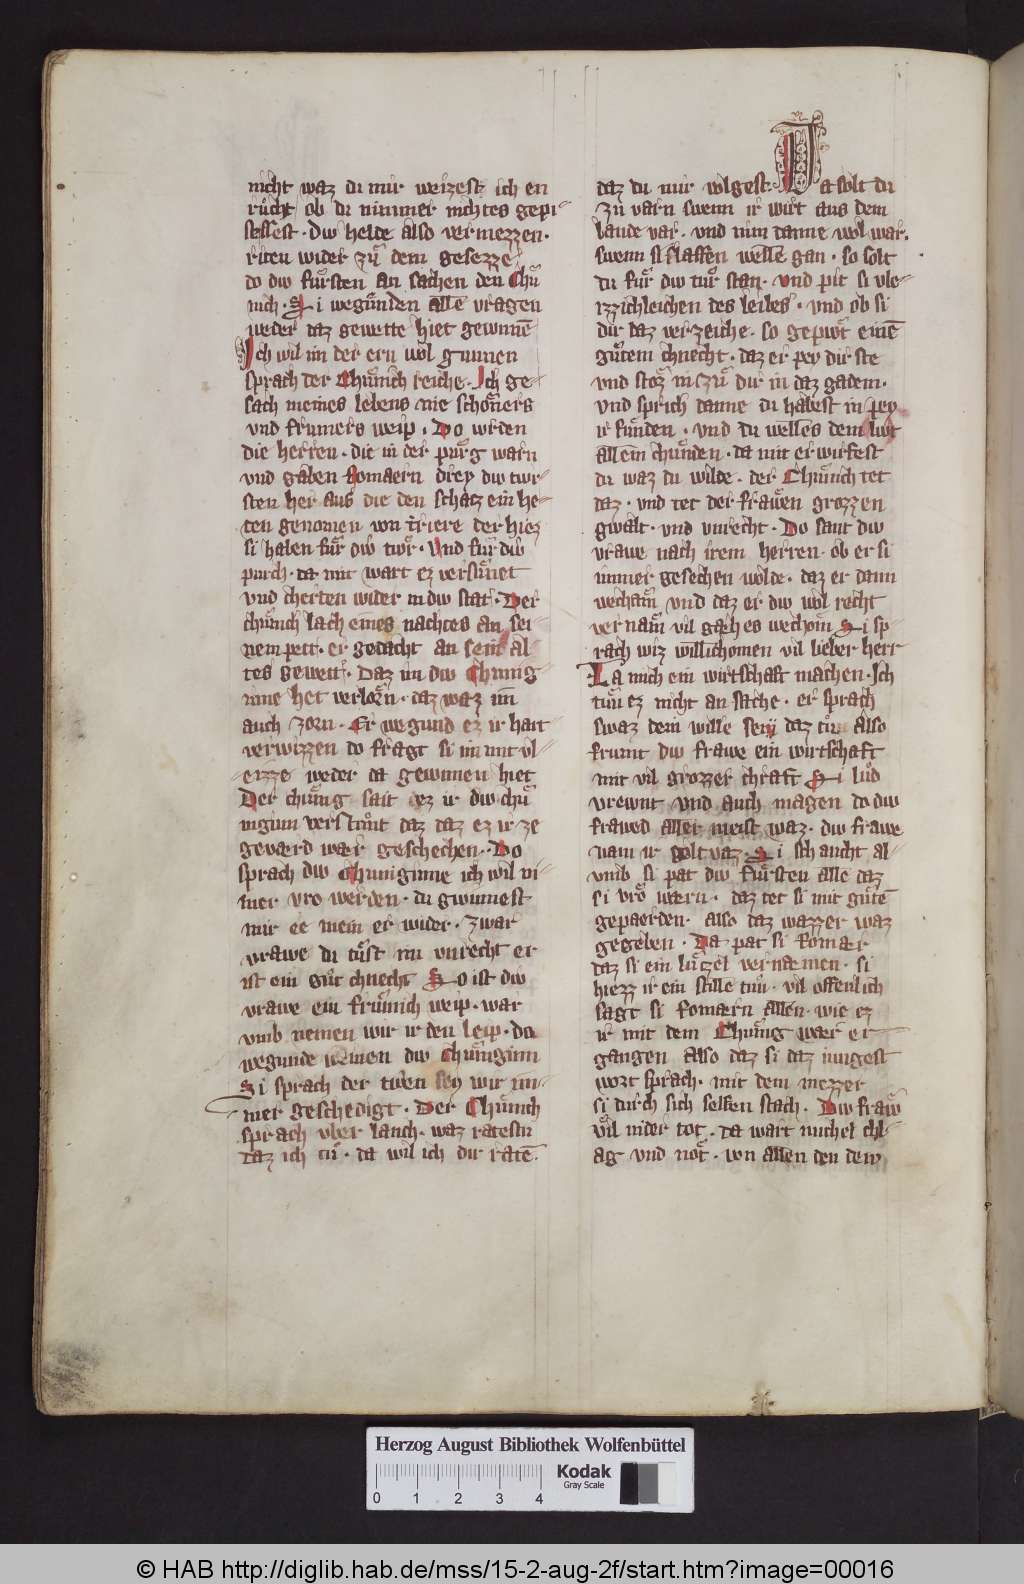 nicht waz du mir weizest ich en
ruͦcht ob du nimmer nichtes gepi
sessest · diw helde also vermezzen ·
riten wider zuͦ dem gesezze
do diw fuͦrsten an sachen den Chuͦ
nich · Si wegunden alle vragen
weder daz gewette hiet gewunnē
Ich wil im der ern wol gunnen
sprach der Chuͦnich reiche · Ich ge
sach meines lebens nie schoͦners
vnd frumers weip · Do wrden
die herren · die in der puͦrg warn
vnd gaben Romaern drey diw twr
sten her aus die den schatz ein he
ten genomen von triere der hiez
si haben fuͦr diw twͦr · Vnd fuͦr diw
purch · da mit wart ez versuͦnet
vnd cherten wider in diw stat · Der
chuͦnch lach eines nachtes an sei
nem pett · er gedacht an sein al
tes gewett · Daz im diw Chunig
inne het verlorn · daz waz im
auch zorn · Er wegund ez ir hart
verwizzen do fragt si im mit vl
eizze weder da gewunnen hiet
Der chuͦnig sait ez ir diw chuͦ
niginn verstuͦnt daz daz ez ir ze
geværd wær geschechen · Do
sprach diw Chuniginne ich wil ni
mer vro werden · du gwinnest
mir ee mein er wider · zwar
vrawe du tuͦst im vnrecht er
ist ein guͦt chnecht So ist diw
vrawe ein fruͦmich weip · war
vmb nemen wir ir den leip · do
wegunde wainen diw Chuͦniginn
Si sprach der triwen sey wir im
mer geschedigt · Der Chuͦnich
sprach vber lanch · waz ratestu
daz ich tuͦ · da wil ich dir ratē
daz du mir volgest · Da solt du
zu varn swenn ir wirt aus dem
lande var · vnd nim danne wol war ·
swenn si slaffen welle gan · so solt
du fuͦr diw tuͦr stan · vnd pit si vle
izzichleichen des leibes · vnd ob si
dir daz verzeiche · so gepiwt einē
guͦtem chnecht · daz er pey dir ste
vnd stoz in zuͦ dir in daz gadem ·
vnd sprich danne du habest in pey
ir funden · vnd du welles dem liwt
allein chuͦnden · da mit erwirfest
du waz du wilde · der Chuͦnich tet
daz · vnd tet der frawen grozzen
gwalt · vnd vnrecht · Do sant diw
vrawe nach irem herren · ob er si
immer gesechen wolde · daz er dann
wechaͦm vnd daz er diw wol recht
vernaͦm vil gaͤches wechom Si sp
rach wiz willichomen vil lieber herr
La mich ein wirtschaft machen · Ich
tuͦ ez nicht an sache · er sprach
swaz dein wille sey daz tuͦ also
frumt diw frawe ein wirtschaft
mit vil grozzer chraft Si luͦd
vrewnt vnd auch magen do diw
frawed aller meist waz · diw frawe
nam ir goltvaz · Si schancht al
vmb si pat diw fuͦrsten alle daz
si vro wærn · daz tet si mit guͦtē
gepaerden · also daz wazzer waz
gegeben · Da pat si Romær
daz si ein luͦtzel vernæmen · si
hiezz ir ein stille tuͦn · vil offenlich
sagt si Romærn allen · wie ez
ir mit dem Chuͦnig wær er
gangen also daz si daz iungest
wort sprach · mit dem mezzer
si durch sich selben stach · Diw fraw
vil nider tot · da wart michel chl
ag vnd not · von allen den dew
Herzog August Bibliothek Wolfenbüttel
Kodak
Gray Scale
0 1 2 3 4
© HAB http://diglib.hab.de/mss/15-2-aug-2f/start.htm?image=00016